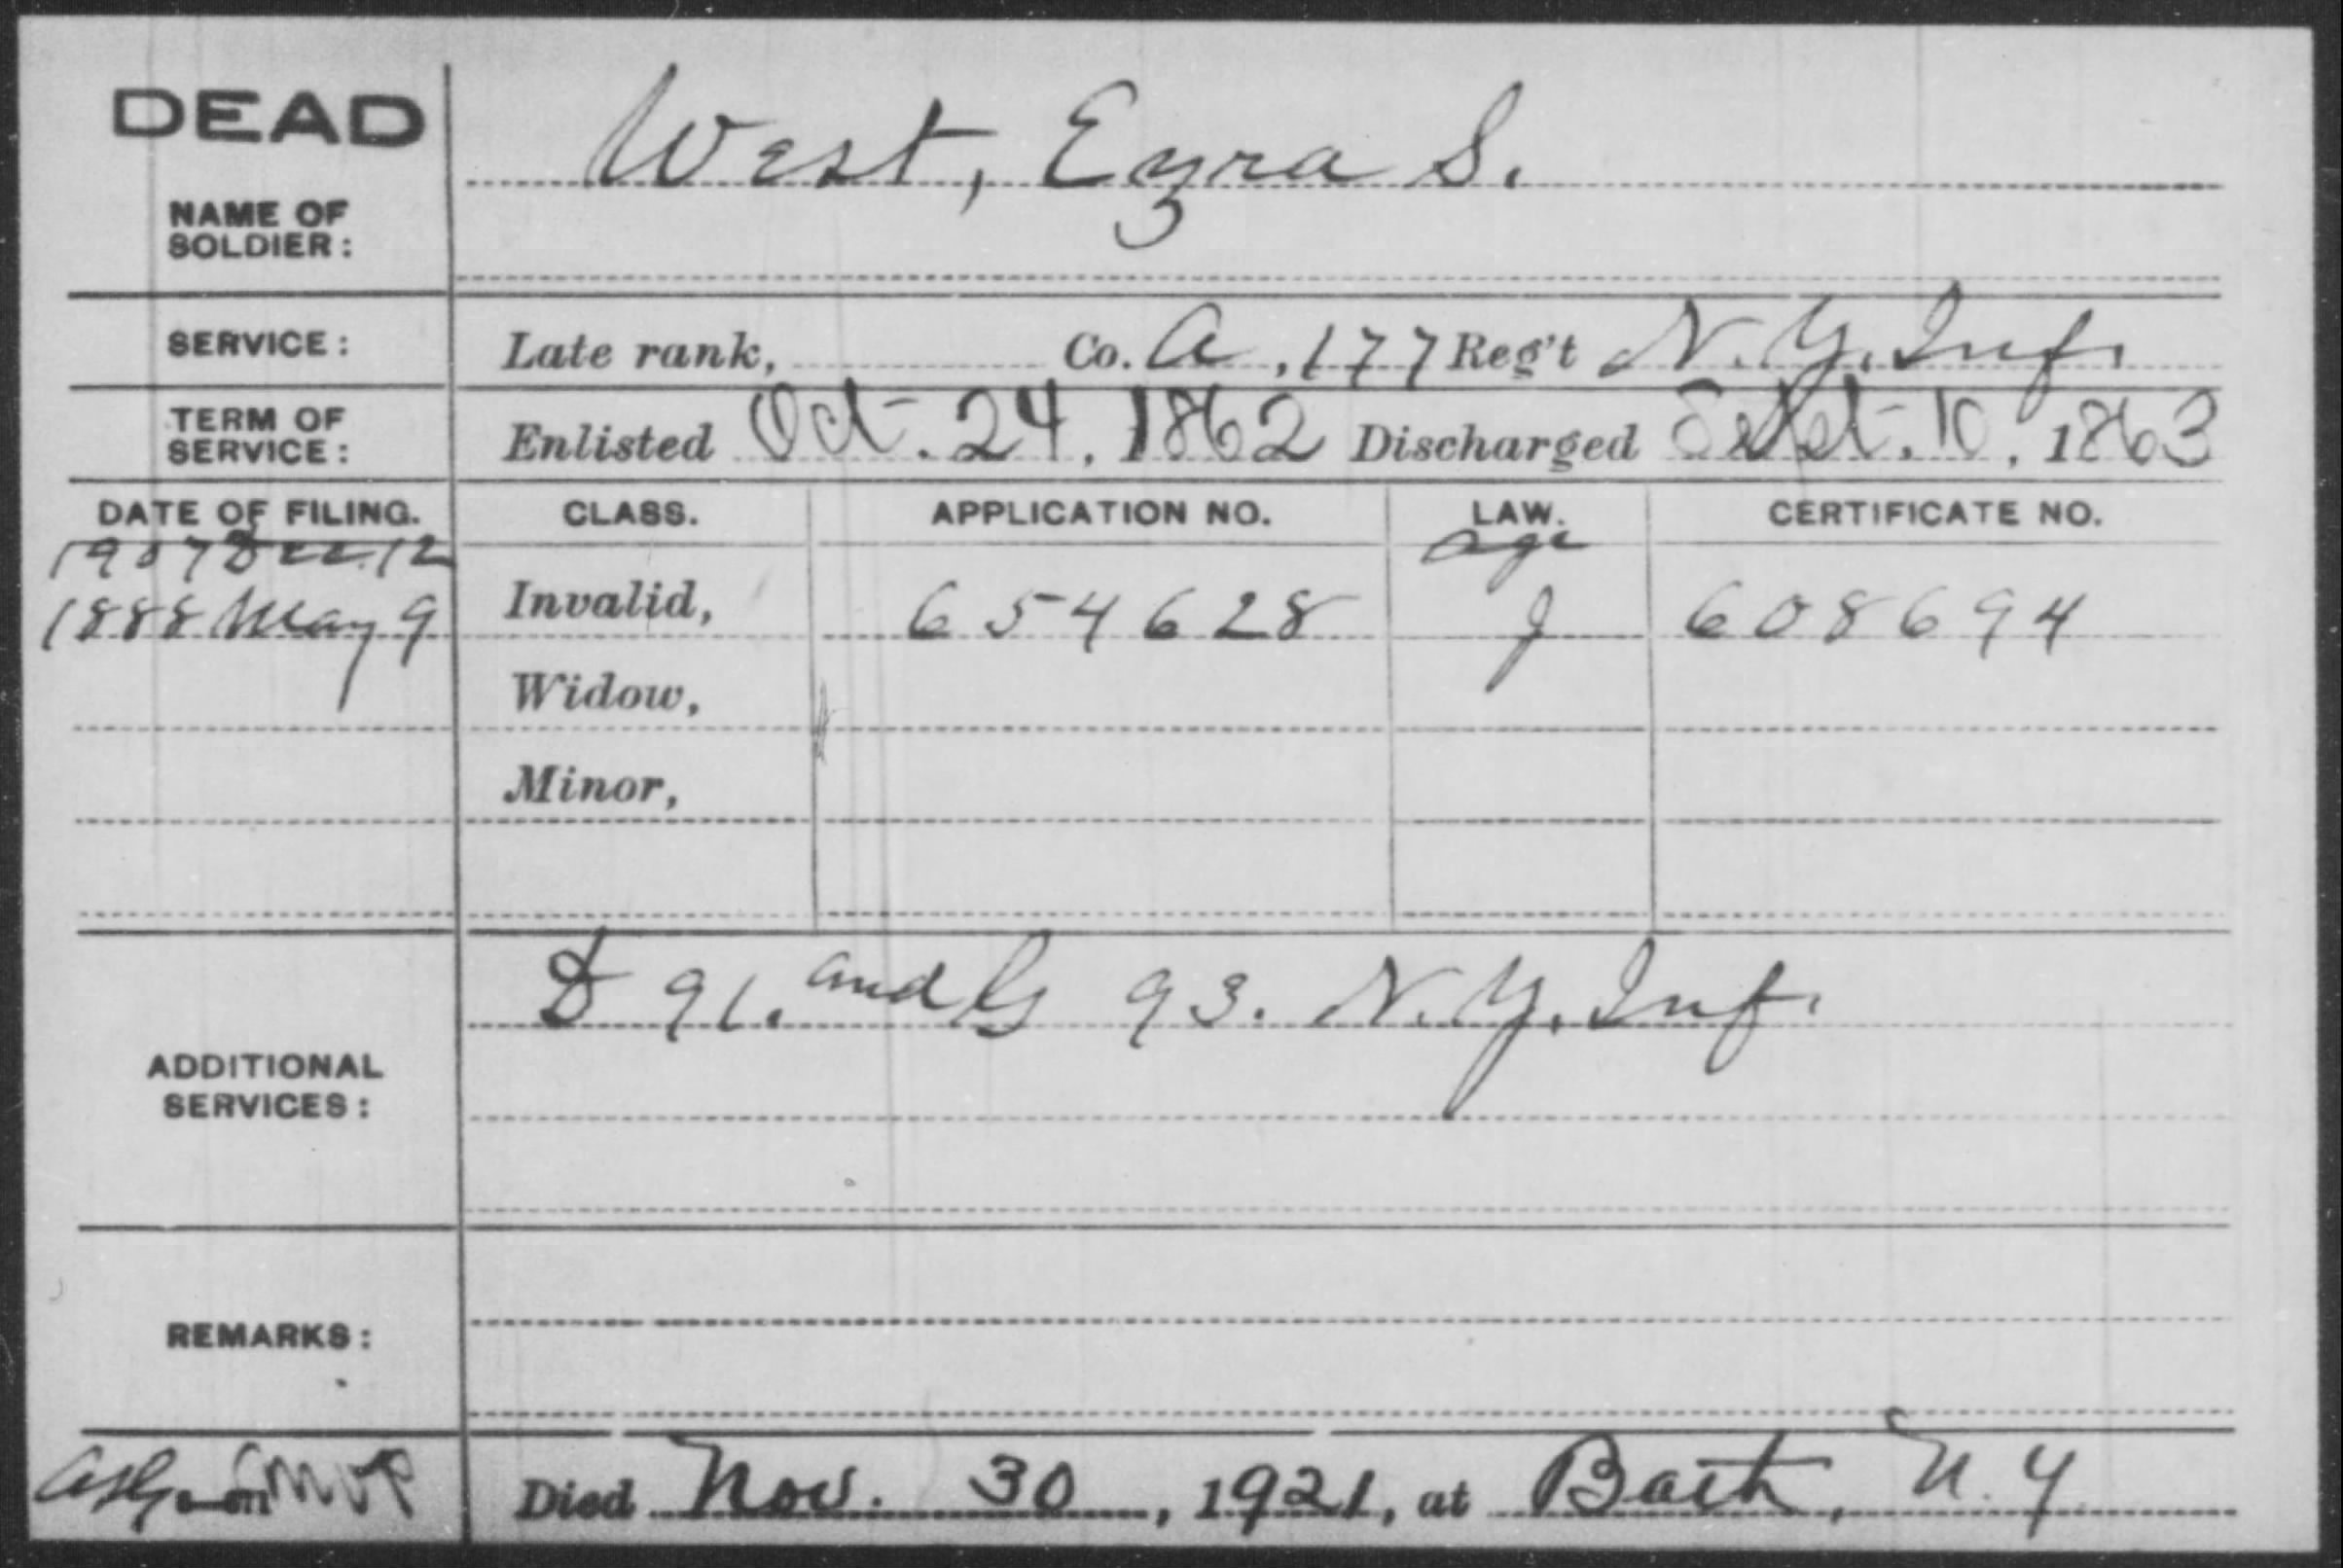 DEAD
West, Ezra S.
NAME OF
SOLDIER:
SERVICE: Late rank, Co. A, 177 Reg't N.Y. Inf.
TERM OF
SERVICE: Enlisted Oct. 24, 1862 Discharged Sept. 10, 1863
DATE OF FILING. CLASS. APPLICATION NO. LAW. CERTIFICATE NO.
1907 Dec. 12 Age
1888 May 9 Invalid, 654628 J 608694
Widow,
Minor,
D 91. and G 93. N.Y. Inf.
ADDITIONAL
SERVICES:
REMARKS:
Died Nov. 30, 1921, at Bath, N.Y